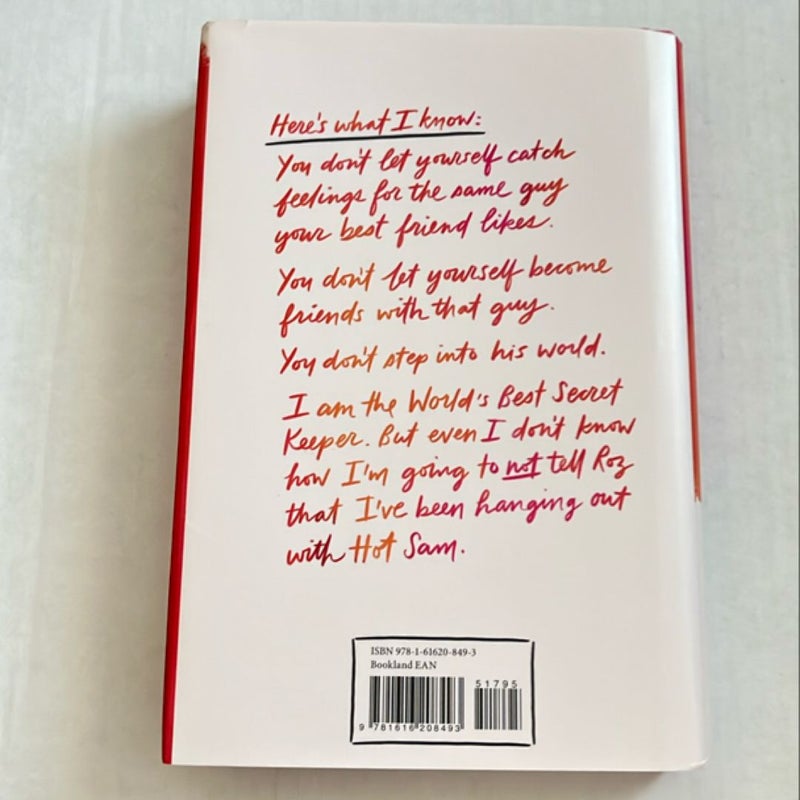 Here's what I know:
You don't let yourself catch
feelings for the same guy
your best friend likes.
You don't let yourself become
friends with that guy.
You don't step into his world.
I am the World's Best Secret
Keeper. But even I don't know
how I'm going to not tell Roz
that I've been hanging out
with Hot Sam.
ISBN 978-1-61620-849-3
Bookland EAN
51795
9 781616 208493